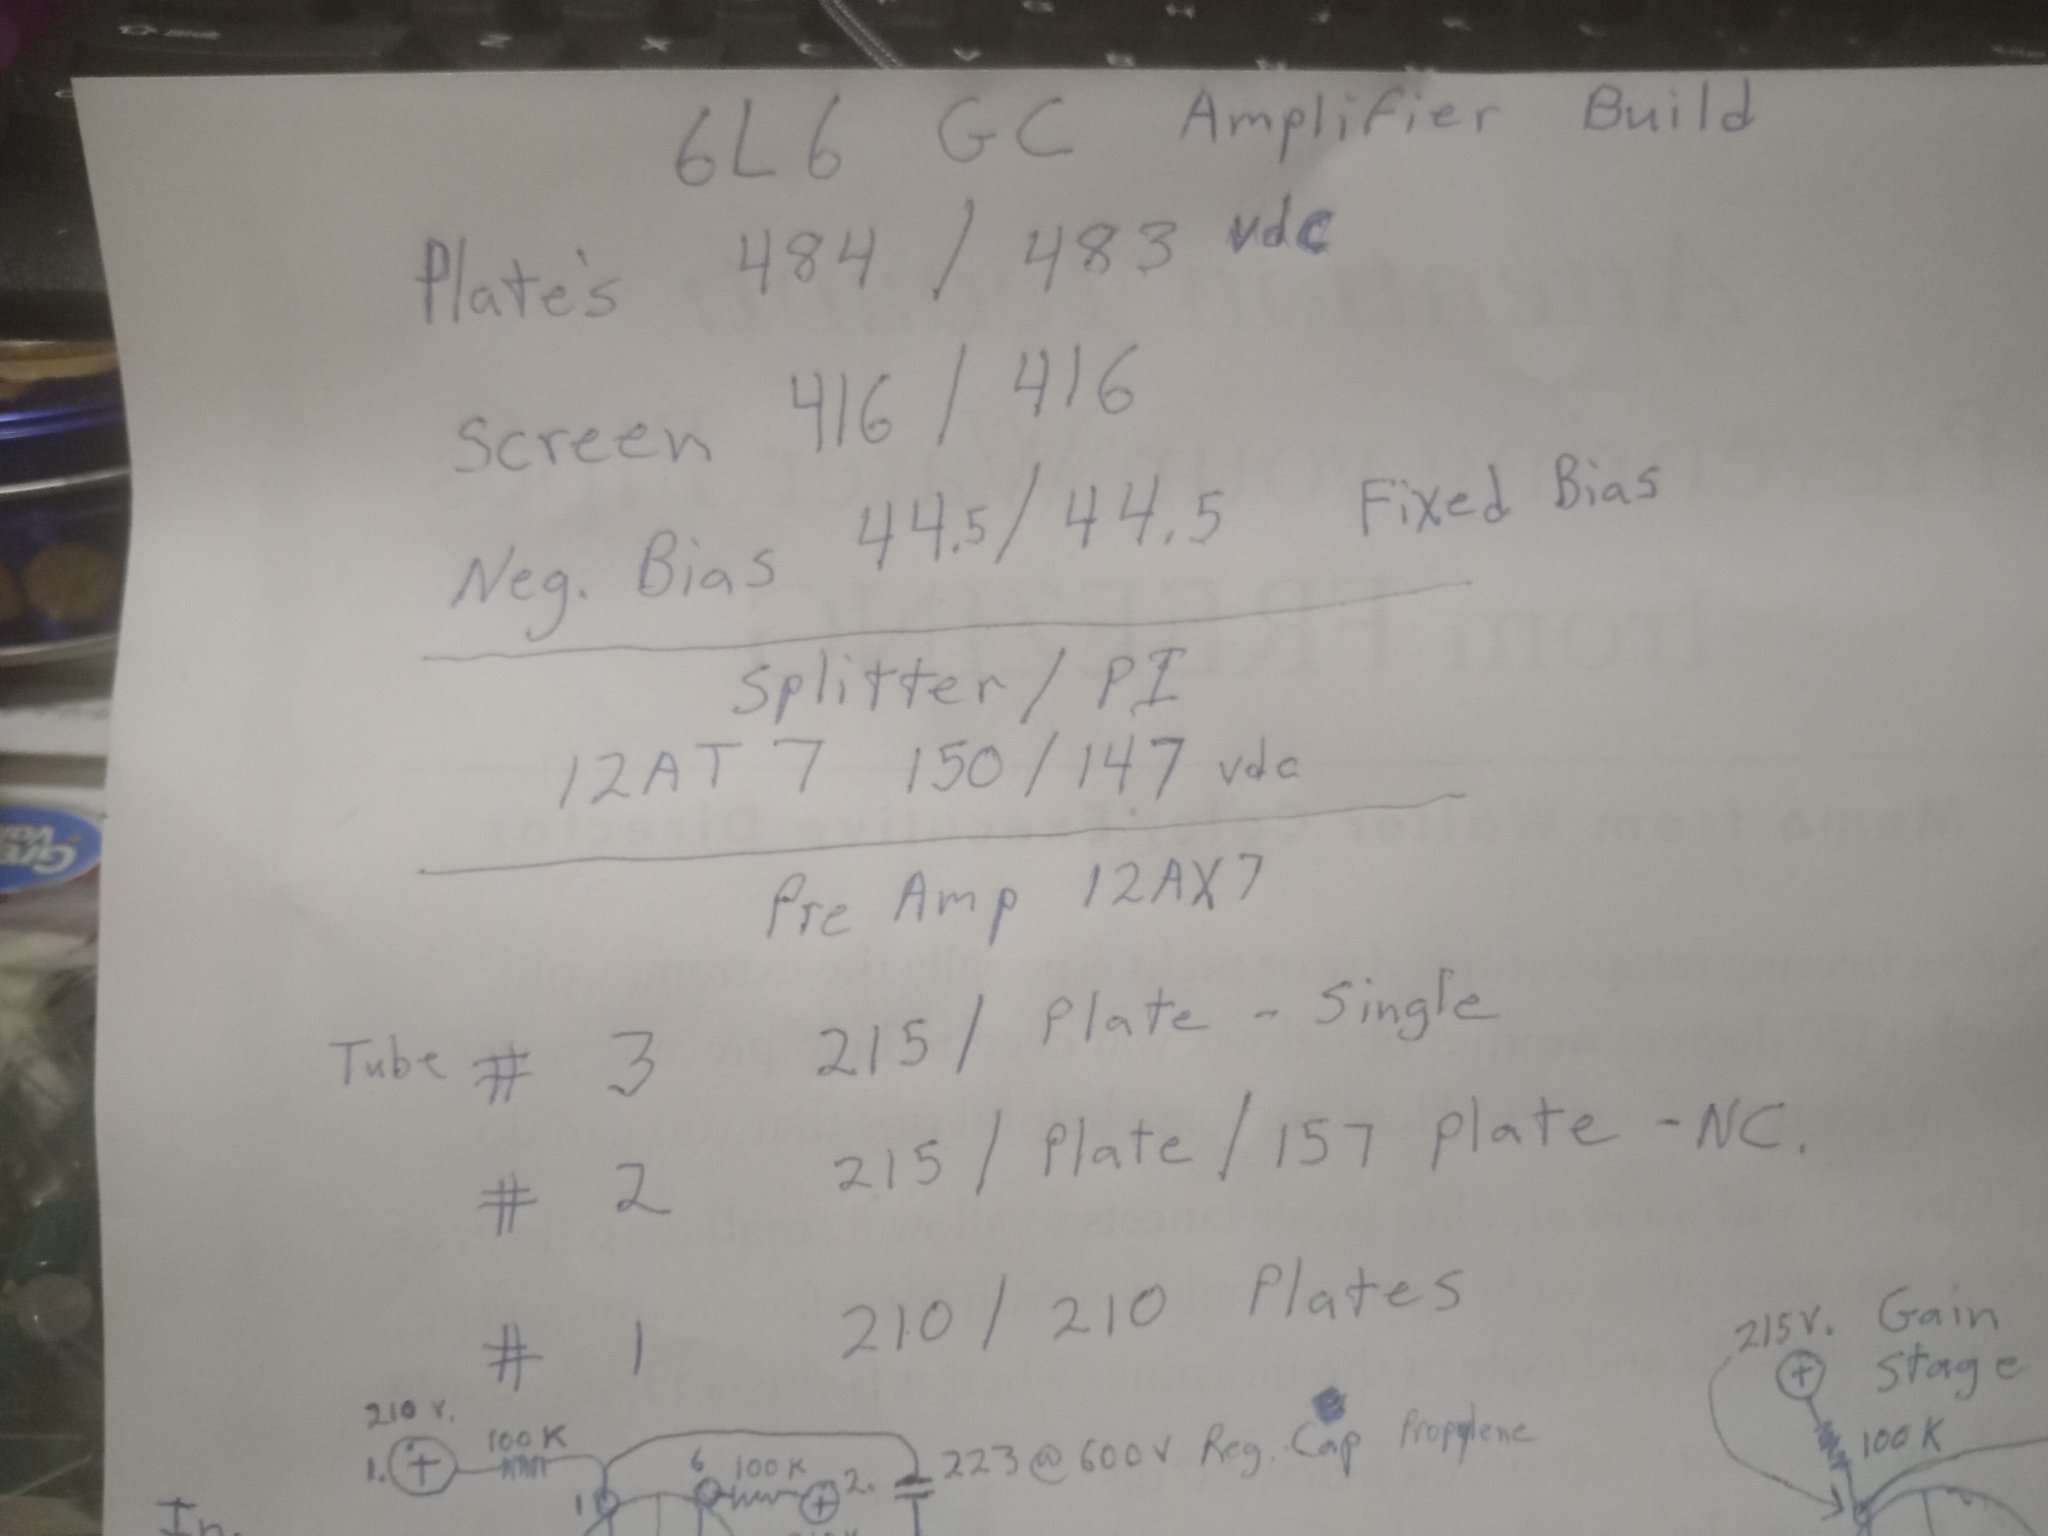 6L6 GC Amplifier Build
Plate's 484 / 483 vdc
Screen 416 / 416
Neg. Bias 44.5 / 44.5 Fixed Bias
Splitter / PI
12AT7 150 / 147 vdc
Pre Amp 12AX7
Tube # 3 215 / Plate - Single
# 2 215 / Plate / 157 plate - NC.
# 1 210 / 210 Plates
215 V. Gain
Stage
210 V.
1. + 100K
6 100K + 2.
223 @ 600V Reg. Cap Propylene
+ 100K
1
In.